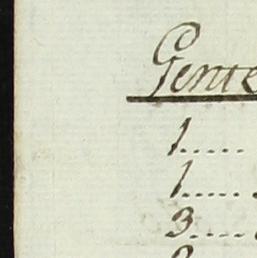 Gente
1.....
1.....
3....